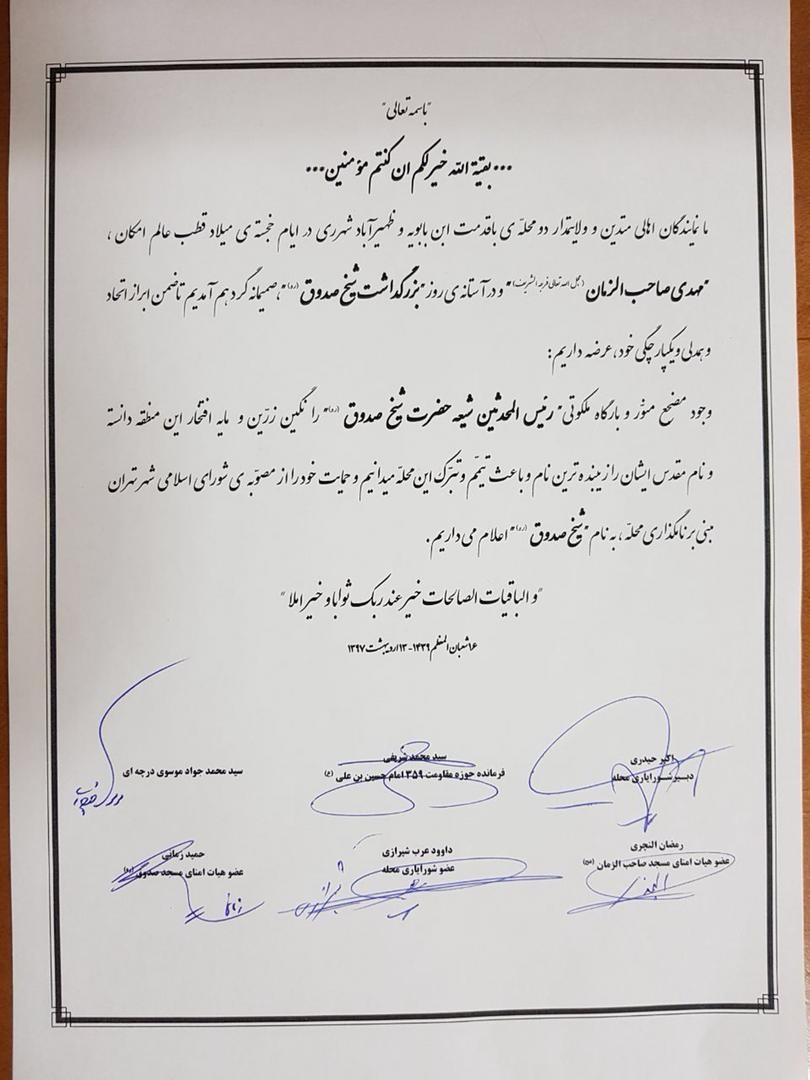 "باسمه تعالی"
...بقیة الله خیر لکم ان کنتم مؤمنین...
ما نمایندگان اهالی متدین و ولایتمدار دو محلّه ی باقدمت ابن بابویه و ظهیرآباد شهرری در ایام خجسته ی میلاد قطب عالم امکان ،
"مهدی صاحب الزمان (عجل الله تعالی فرجه الشریف)" و در آستانه ی روز "بزرگداشت شیخ صدوق (ره)" ،صمیمانه گرد هم آمدیم تا ضمن ابراز اتحاد
و همدلی و یکپارچگی خود ،عرضه داریم :
وجود مضجع منوّر و بارگاه ملکوتی "رئیس المحدثین شیعه حضرت شیخ صدوق (ره)" را نگین زرّین و مایه افتخار این منطقه دانسته
و نام مقدس ایشان را زیبنده ترین نام و باعث تیمّم و تبرّک این محلّه میدانیم و حمایت خود را از مصوّبه ی شورای اسلامی شهر تهران
مبنی بر نامگذاری محلّه ، به نام "شیخ صدوق (ره)" اعلام می داریم .
"و الباقیات الصالحات خیر عند ربک ثوابا و خیر املا"
۱۶شعبان المعظم ۱۴۳۹-۱۳ اردیبهشت ۱۳۹۷
اکبر حیدری
دبیر شورایاری محله
سید محمد شریفی
فرمانده حوزه مقاومت ۳۵۹ امام حسین بن علی (ع)
سید محمد جواد موسوی درچه ای
رمضان النچری
عضو هیات امنای مسجد صاحب الزمان (عج)
داوود عرب شیرازی
عضو شورایاری محله
حمید زمانی
عضو هیات امنای مسجد صدوق (ره)